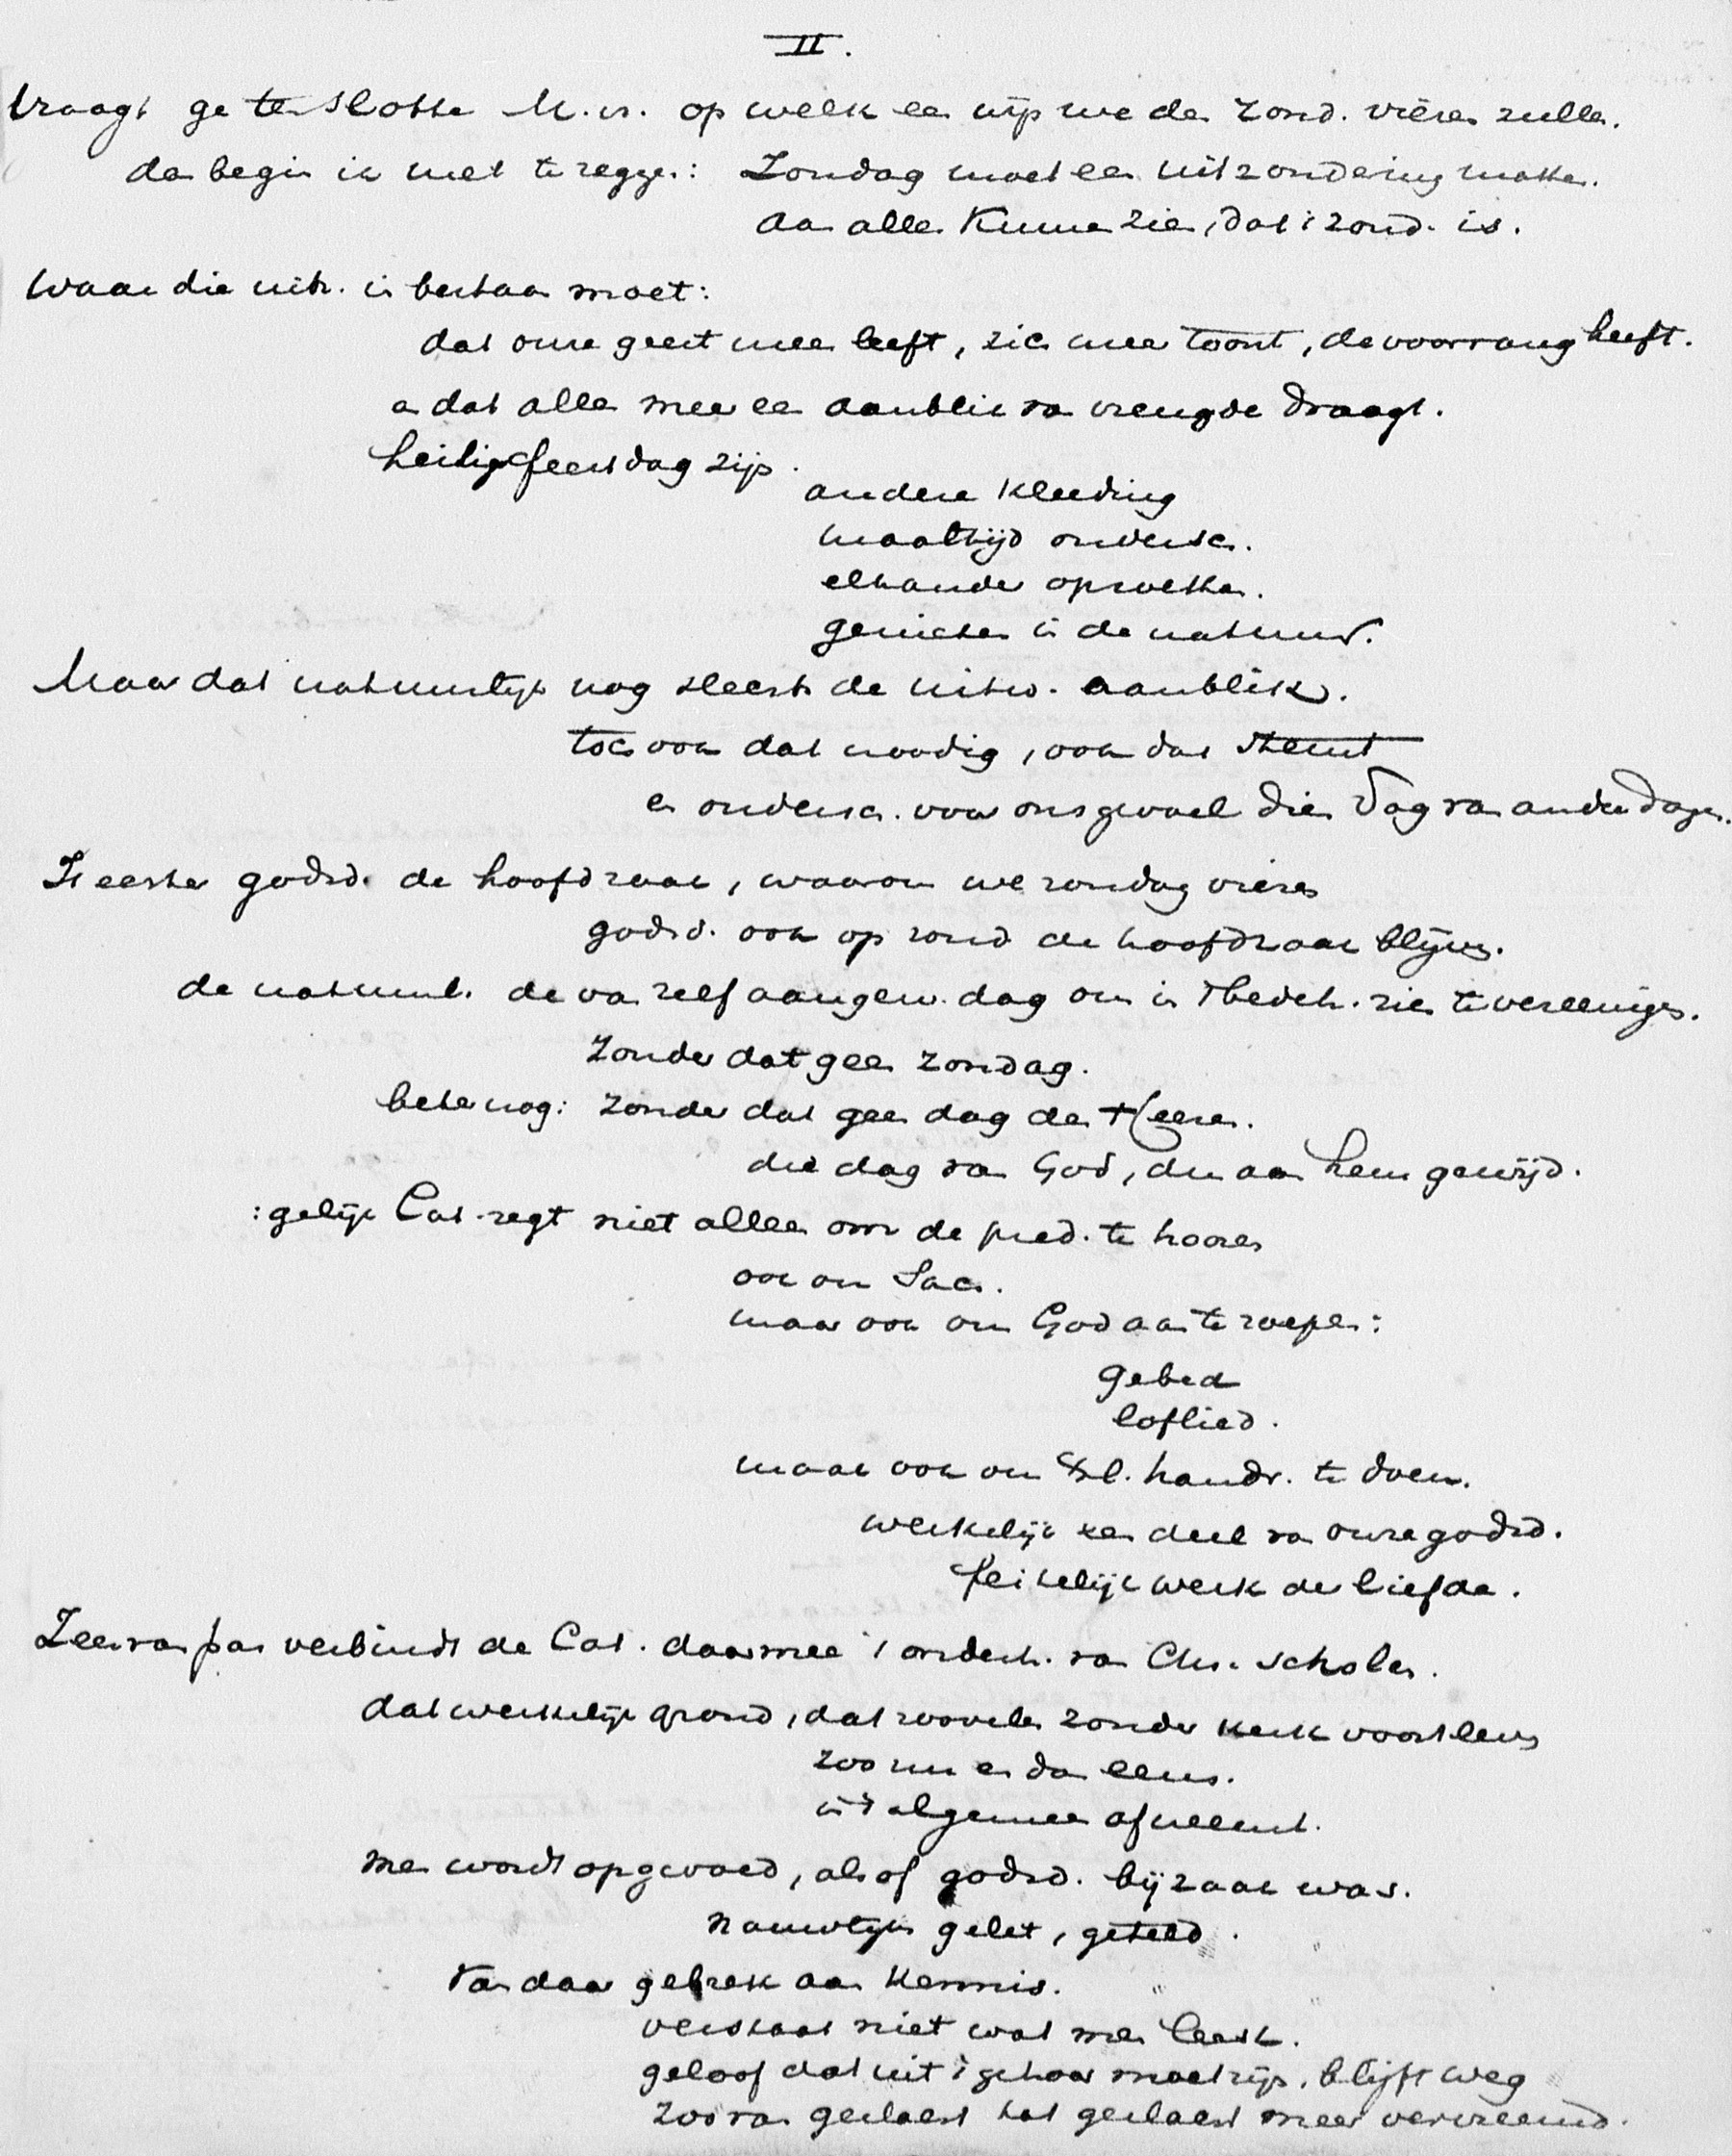 II.
Vraagt ge ten slotte M.vr. op welk een wijs we den Zond. vieren zullen.
dan begin ik met te zeggen: Zondag moet een uitzondering maken.
aan alles kunnen zien, dat 't zond. is.
Waar die uitz. in bestaan moet:
dat onze geest meer leeft, zich meer toont, de voorrang heeft.
en dat alles meer een aanblik van vreugde draagt.
heilige feestdag zijn.
andere kleeding
maaltijd ondersch.
elkander opzoeken.
genieten in de natuur.
Maar dat natuurlijk nog slechts de uitw. aanblik.
toch ook dat noodig, ook dat stemt
en ondersch. voor ons gevoel dien dag van andere dagen.
Is echter godsd. de hoofdzaak, waarom we zondag vieren
godsd. ook op zond de hoofdzaak blijven.
de natuurl. de van zelf aangew. dag om in 't bedeh. zich te vereenigen.
Zonder dat geen zondag.
beter nog: zonder dat geen dag des Heeren.
die dag van God, die aan hem gewijd.
: gelijk Cat. zegt niet alleen om de pred. te hooren
ook om Sacr.
maar ook om God aan te roepen:
gebed
loflied.
maar ook om Chr. handr. te doen.
werkelijk een deel van onze godsd.
feitelijk werk der liefde.
Zeer van pas verbindt de Cat. daarmee 't onderh. van Chr. scholen.
dat werkelijk grond, dat zoovelen zonder kerk voortleven
zoo nu en dan eens.
in 't algemeen afneemt.
men wordt opgevoed, alsof godsd. bijzaak was.
nauwlijks gelet, geteld.
Van daar gebrek aan kennis.
verstaat niet wat men leest.
geloof dat uit 't gehoor moet zijn, blijft weg
zoo van geslacht tot geslacht meer vervreemd.